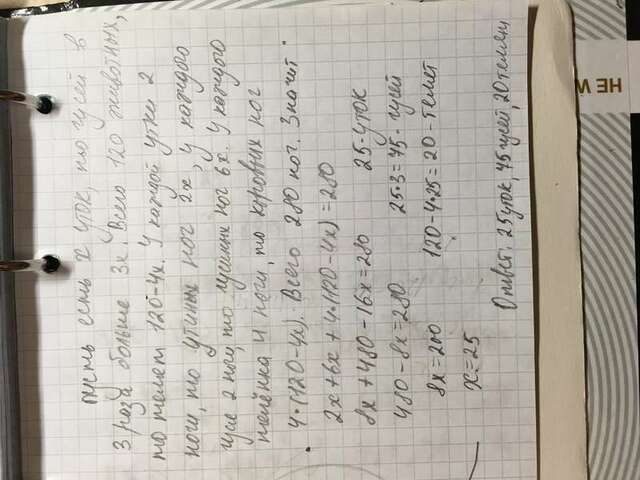 пусть есть x уток, то гусей в
3 раза больше 3x. Всего 120 животных,
то телят 120-4x. У каждой утки 2
ноги, то утиных ног 2x, у каждого
гуся 2 ноги, то гусиных ног 6x. У каждого
телёнка 4 ноги, то коровьих ног
4•(120-4x). Всего 280 ног. Значит
2x+6x+4•(120-4x)=280
8x+480-16x=280
25-уток
480-8x=280
25•3=75-гусей
8x=200
120-4•25=20-телят
x=25
Ответ: 25 уток, 75 гусей, 20 телят
НЕ